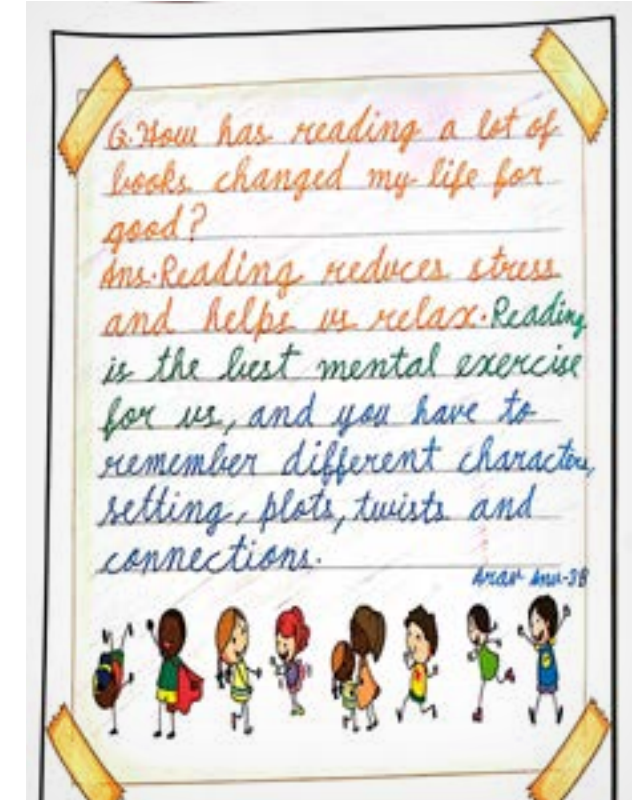 Q. How has reading a lot of
books changed my life for
good?
Ans. Reading reduces stress
and helps us relax. Reading
is the best mental exercise
for us, and you have to
remember different characters,
setting, plots, twists and
connections.
Arav -3B